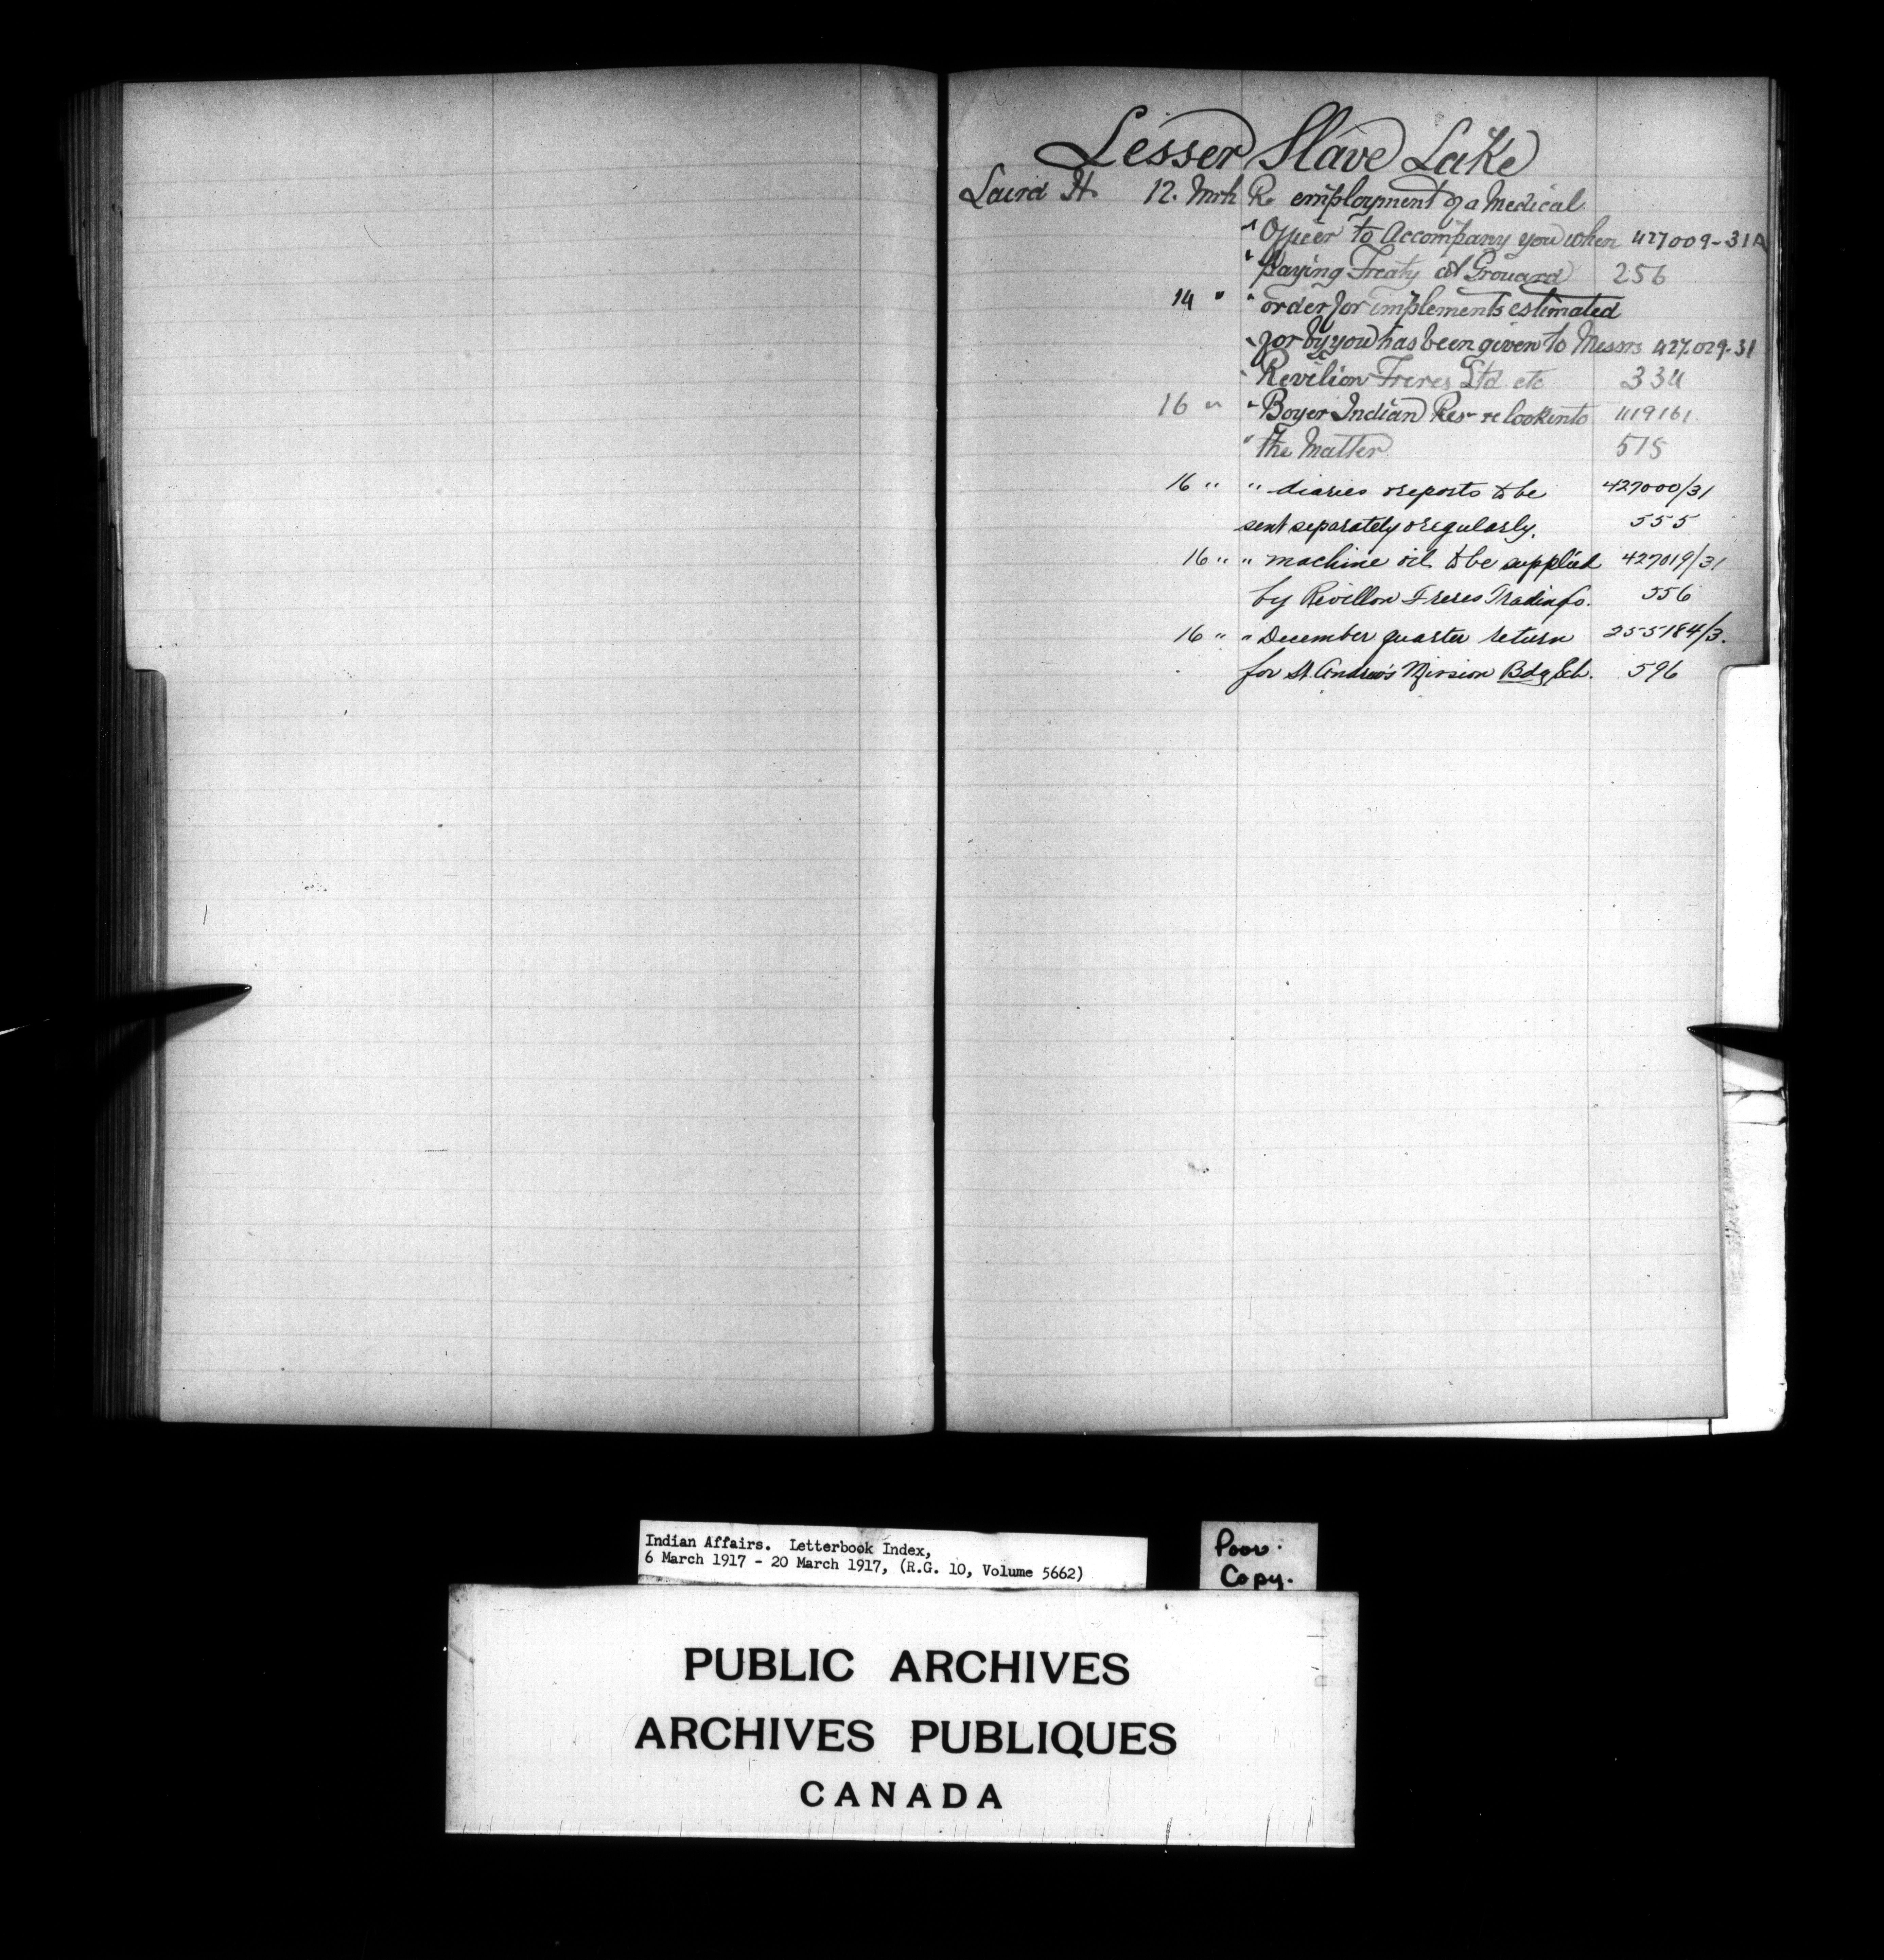 Lesser Slave Lake
Laird H. 12. Mrh Re employment of a Medical
" Officer to Accompany you when 427009-31A
" paying Treaty at Grouard 256
14 " " order for implements estimated
" for by you has been given to Messrs 427.029-31
" Revilion Freres Ltd. etc 334
16 " " Boyer Indian Res- re look into 119161.
" the Matter. 515
16 " " diaries & reports to be 427000/31
sent separately & regularly. 555
16 " " machine oil to be supplied 427019/31
by Revillon Freres Trading Co. 556
16 " " December quarter return 255184/3.
for St. Andrew's Mission Bdg Sch. 596
Indian Affairs. Letterbook Index,
6 March 1917 - 20 March 1917, (R.G. 10, Volume 5662)
Poor
Copy.
PUBLIC ARCHIVES
ARCHIVES PUBLIQUES
CANADA